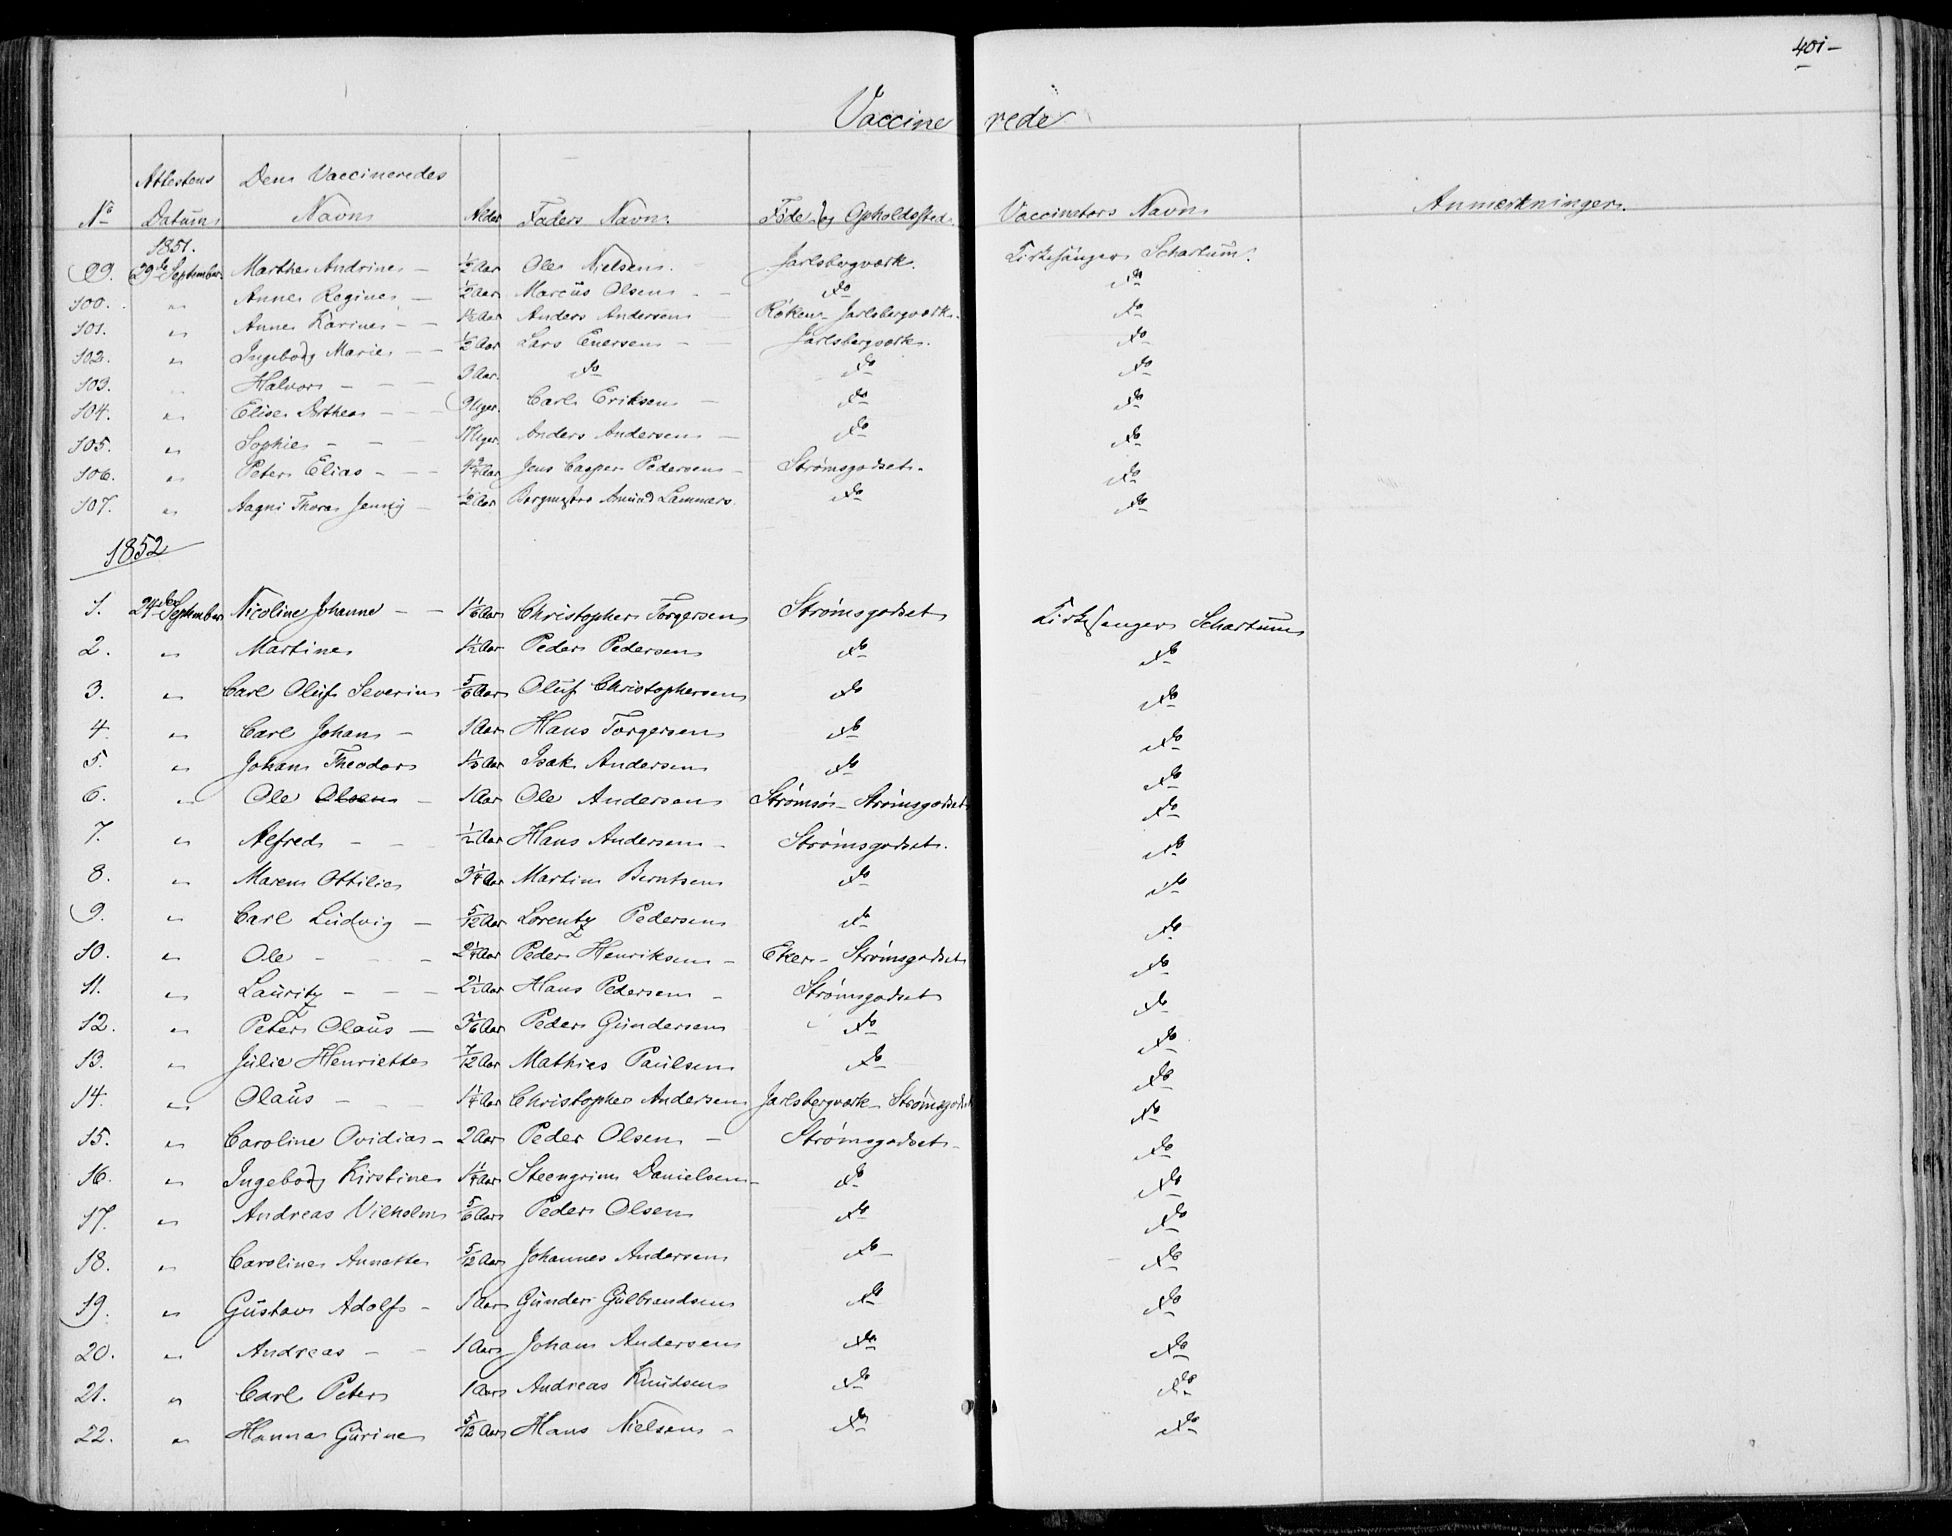 401-
Vaccinerede
No Attestens Datum Den Vaccineredes Navn Alder Faders Navn Føde og Opholdssted Vaccinators Navn Anmerkninger.
1851.
99. 29de September Marthe Andrine - ½ Aar Ole Nielsen. - Jarlsbergværk. Kirkesanger Schartum.
100. " Anne Regine - ½ Aar Marcus Olsen - - do do
101. " Anne Karine - - Anders Andersen - Røken - Jarlsbergværk. do
102. " Ingeborg Marie - - ½ Aar Lars Enersen - - Jarlsbergværk. do
103. Halvor - - - 3 Aar. do do do
104. " Elise Dorthea - - - 9 Uger. Carl Eriksen - do do
105. " Sophie - - - Uger. Anders Andersen - do do
106. " Peter Elias - - - Aar Jens Casper Pedersen - Strømsgodset. do
107. " Aagni Thora Jenny - ½ Aar Bergmester Amund Lammers. do do
1852
1. 24de September Nicoline Johanne - - 1⅙ Aar Christopher Torgersen Strømsgodset Kirkesanger Schartum
2. " Martine 1½ Aar Peder Pedersen do do
3. " Carl Oluf Severin 5/6 Aar Oluf Christophersen do do
4. " Carl Johan - 1 Aar Hans Torgersen do do
5. " Johan Theodor 1⅓ Aar Isak Andersen do do
6. " Ole Olsen - 1 Aar Ole Andersen Strømsø - Strømsgodset do
7. " Alfred - - ½ Aar Hans Andersen - Strømsgodset. do
8. " Maren Ottilie 3¼ Aar Martin Berntsen do do
9. " Carl Ludvig - 5/12 Aar Lorentz Pedersen do do
10. " Ole - - - 2¼ Aar Peder Henriksen - Eker - Strømsgodset do
11. " Lauritz - - - 2½ Aar Hans Pedersen - Strømsgodset do
12. " Peter Olaus - 3⅙ Aar Peder Gundersen do do
13. " Julie Henriette 7/12 Aar Mathias Paulsen do do
14. " Olaus - - - 1¼ Aar Christopher Andersen Jarlsbergværk - Strømsgodset do
15. " Caroline Ovidia - 2 Aar Peder Olsen - Strømsgodset - do
16. " Ingeborg Kirstine 1¼ Aar Steengrim Danielsen - do do
17. " Andreas Vilhelm 5/6 Aar Peder Olsen do do
18. " Caroline Annette 5/12 Aar Johannes Andersen do do
19. " Gustav Adolf - 1 Aar Gunder Gulbrandsen do do
20. " Andreas - - 1 Aar Johan Andersen do do
21. " Carl Peter 1 Aar Andreas Knudsen do do
22. " Hanna Gurine 5/12 Aar Hans Nielsen - do do